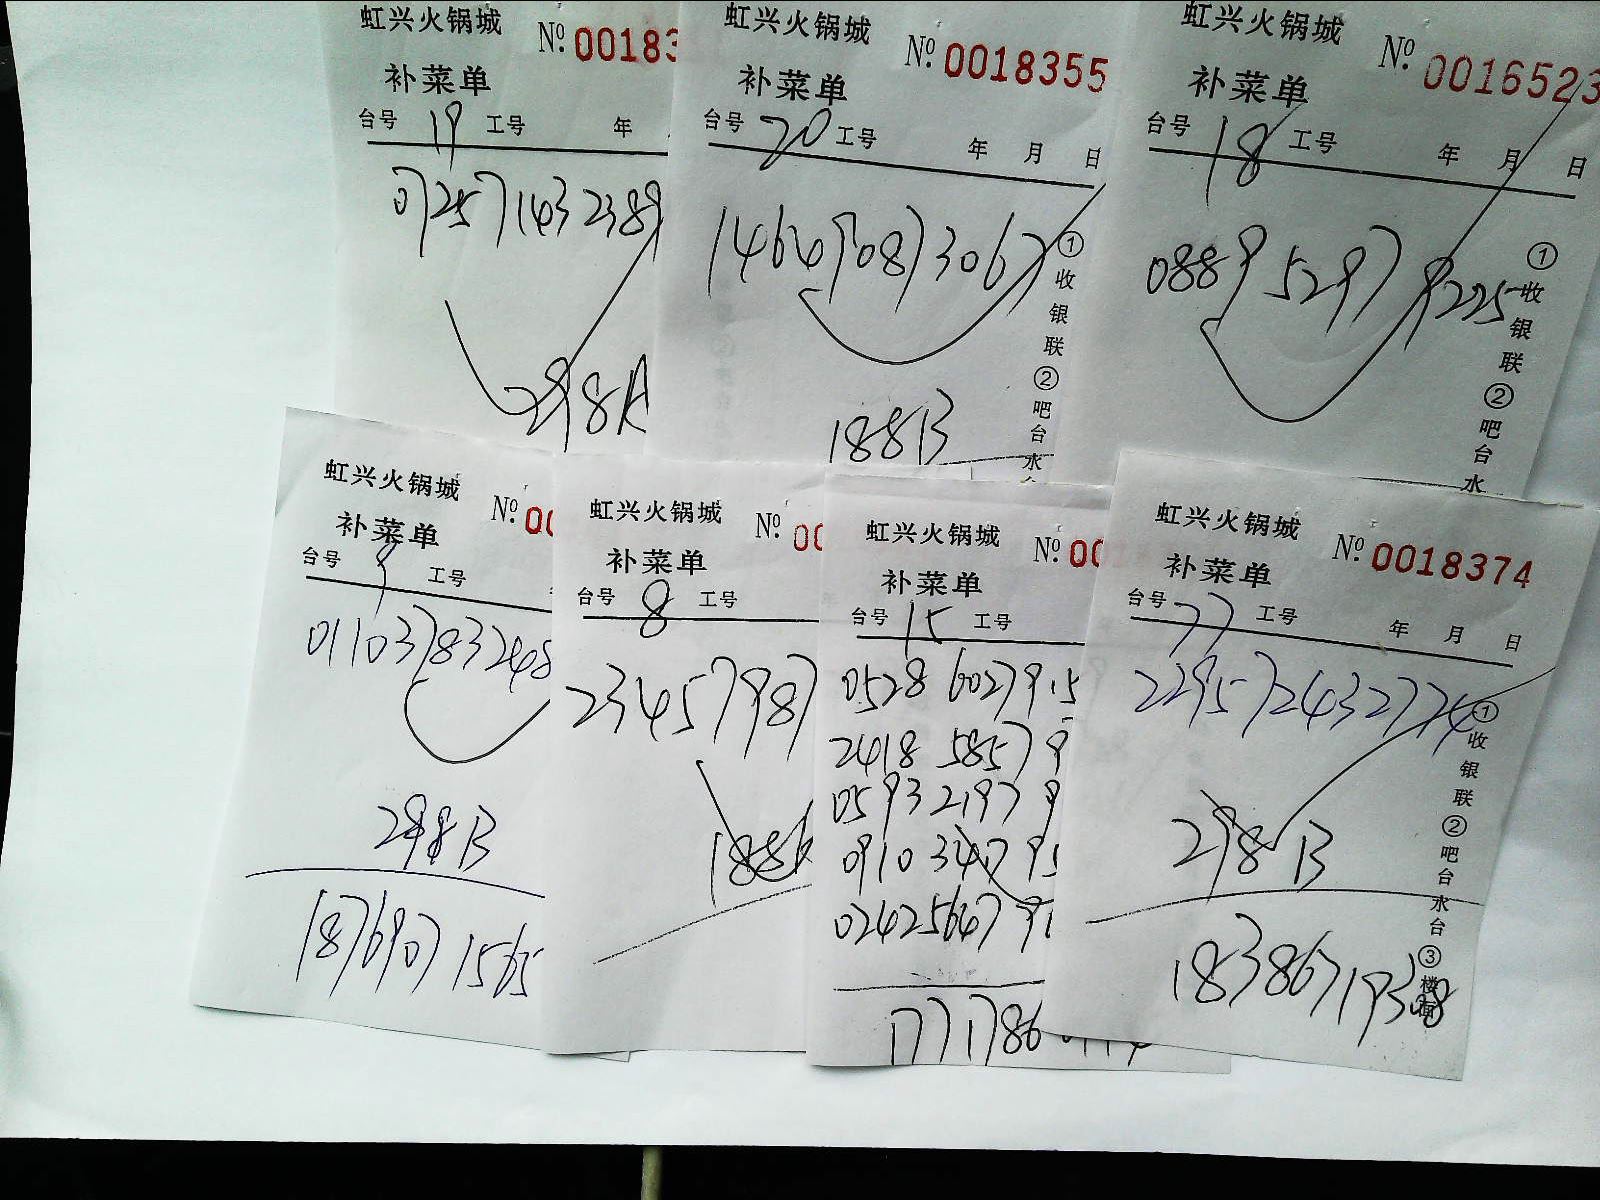 虹兴火锅城
№ 00183
补菜单
台号 19 工号 年
072571432389
298A
虹兴火锅城
№ 0018355
补菜单
台号 20 工号 年 月 日
146490873067
188B
①收银联②吧台水
虹兴火锅城
№ 0016523
补菜单
台号 18 工号 年 月 日
0889 5297 9225
①收银联②吧台水
虹兴火锅城
№ 00
补菜单
台号 9 工号
011037832408
298B
18769071565
虹兴火锅城
№ 00
补菜单
台号 8 工号
23457987
188
虹兴火锅城
№ 00
补菜单
台号 15 工号
0528 6027915
2418 58579
0593 21979
0910 34795
024256479
1771786
虹兴火锅城
№ 0018374
补菜单
台号 77 工号 年 月 日
229572432774
298B
18386719308
①收银联②吧台水台③楼面